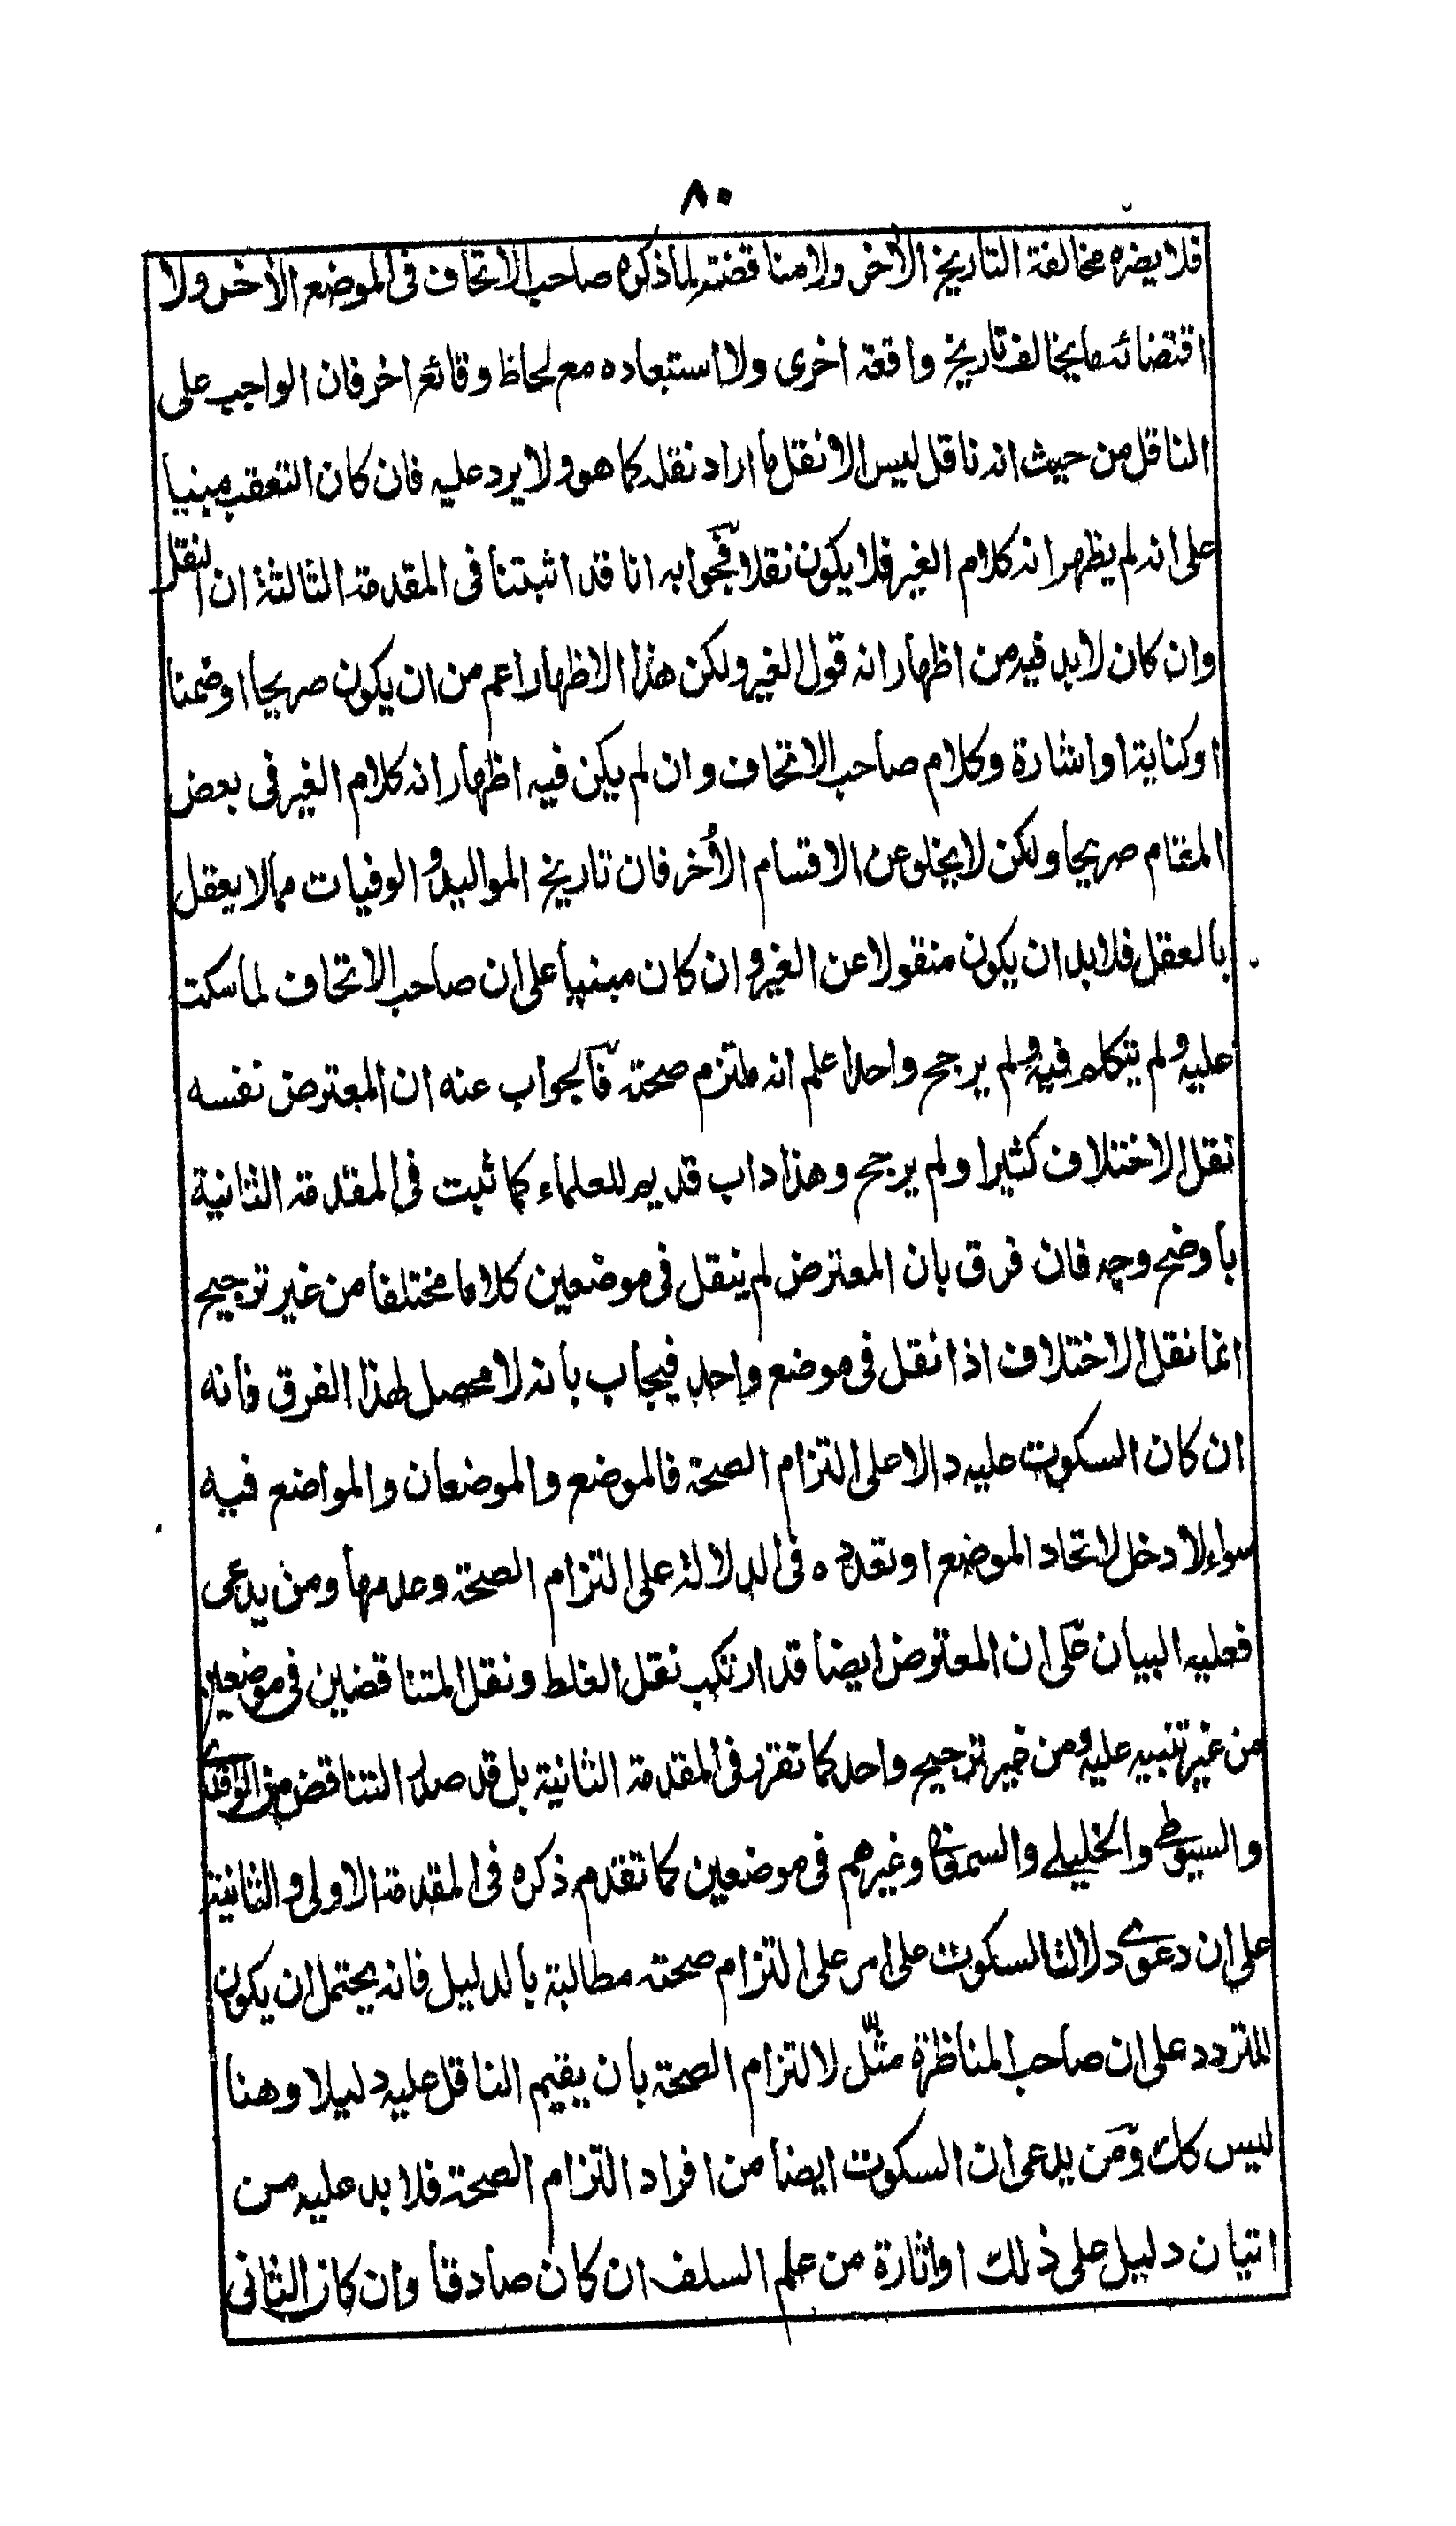 ٨٠
فلا يضره مخالفة التاريخ الأخر ولا مناقضته لما ذكره صاحب الاتحاف فى الموضع الأخر ولا
اقتضائه ما يخالف تاريخ واقعة اخرى ولا استبعاده مع لحاظ وقائع اخر فان الواجب على
الناقل من حيث انه ناقل ليس الا نقل ما اراد نقله كما هو ولا يرد عليه فان كان التعقب مبنيا
على انه لم يظهر انه كلام الغير فلا يكون نقلا فجوابه انا قد اثبتنا فى المقدمة الثالثة ان النقل
وان كان لابد فيه من اظهار انه قول الغير ولكن هذا الاظهار اعم من ان يكون صريحا او ضمنا
او كناية او اشارة وكلام صاحب الاتحاف وان لم يكن فيه اظهار انه كلام الغير فى بعض
المقام صريحا ولكن لا يخلو عن الاقسام الأُخر فان تاريخ المواليد والوفيات مما لا يعقل
بالعقل فلابد ان يكون منقولا عن الغير وان كان مبنيا على ان صاحب الاتحاف لما سكت
عليه ولم يتكلم فيه ولم يرجح واحدا علم انه ملتزم صحته فالجواب عنه ان المعترض نفسه
نقل الاختلاف كثيرا ولم يرجح وهذا داب قديم للعلماء كما ثبت فى المقدمة الثانية
باوضح وجه فان فرق بان المعترض لم ينقل فى موضعين كلاما مختلفا من غير ترجيح
انما نقل الاختلاف اذا نقل فى موضع واحد فيجاب بانه لا محصل لهذا الفرق فانه
ان كان السكوت عليه دالا على التزام الصحة فالموضع والموضعان والمواضع فيه
سواء لا دخل لاتحاد الموضع او تعدده فى الدلالة على التزام الصحة وعدمها ومن يدعى
فعليه البيان على ان المعترض ايضا قد ارتكب نقل الغلط ونقل المتناقضين فى موضعين
من غير تنبيه عليه ومن غير ترجيح واحد كما تقرر فى المقدمة الثانية بل قد صدر التناقض من الواقدى
والسيوطى والخليلى والسمعانى وغيرهم فى موضعين كما تقدم ذكره فى المقدمة الاولى والثانية
على ان دعوى دلالة السكوت على امر على التزام صحته مطالبة بالدليل فانه يحتمل ان يكون
للتردد على ان صاحب المناظرة مثّل لالتزام الصحة بان يقيم الناقل عليه دليلا وهنا
ليس كك ومن يدعى ان السكوت ايضا من افراد التزام الصحة فلا بد عليه من
اتيان دليل على ذلك او اثارة من علم السلف ان كان صادقا وان كان الثانى